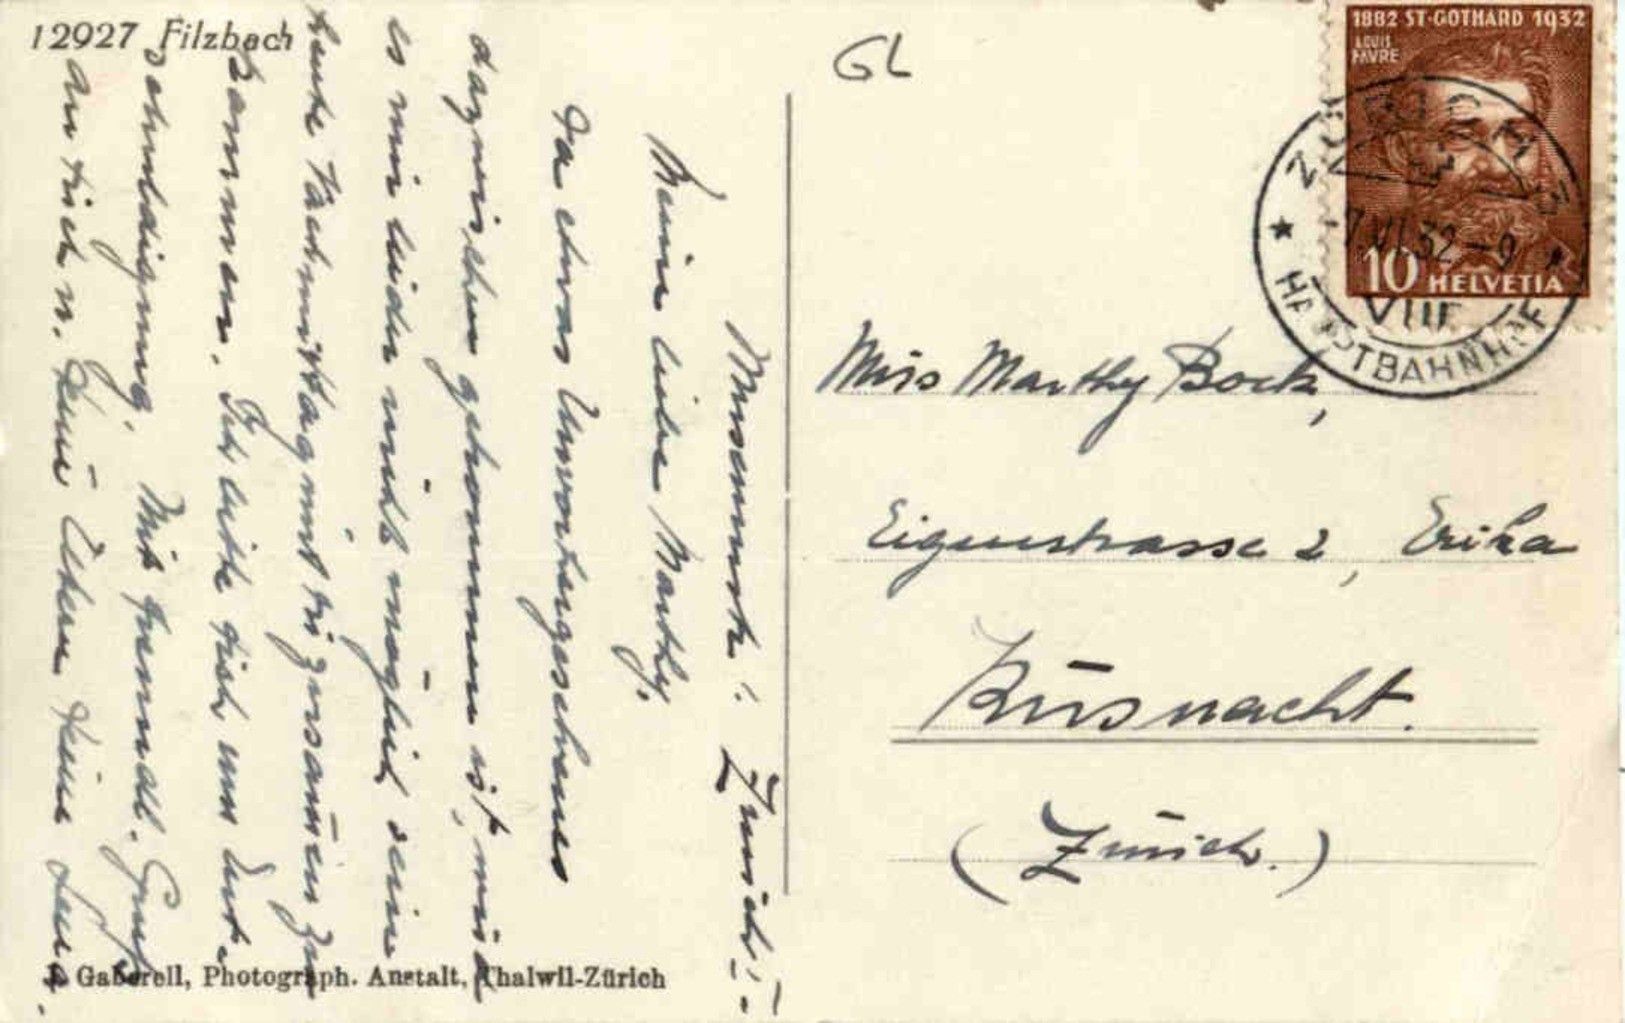 12927 Filzbach
GL
1882 ST-GOTHARD 1932
LOUIS
FAVRE
10 HELVETIA
ZÜRICH
7.VI.32-9
VIII
HAUPTBAHNHOF
Zürich
Meine liebe Marthy,
Da etwas Unvorhergesehenes
dazwischen gekommen ist, wird
es mir leider nicht möglich sein
heute Nachmittag mit Dir zusammen zu
kommen. Ich bitte Dich um Ent-
schuldigung. Mit freundl. Gruß
an Dich u. Deine Eltern Deine
Miss Marthy Bock,
Eigenstrasse 2, Erika
Küsnacht.
(Zürich.)
J. Gaberell, Photograph. Anstalt, Thalwil-Zürich